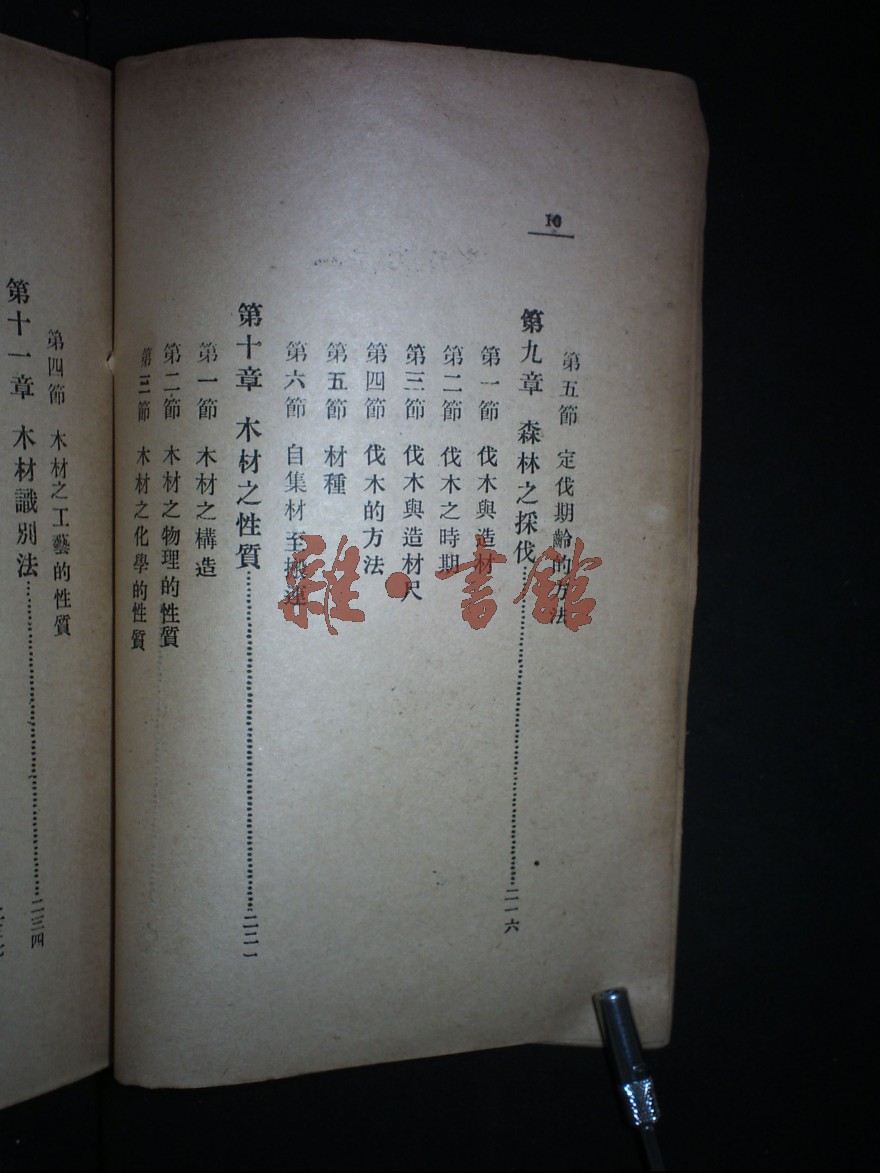 10
第五節 定伐期齡的方法
第九章 森林之採伐………………二一六
第一節 伐木與造材
第二節 伐木之時期
第三節 伐木與造材尺
第四節 伐木的方法
第五節 材種
第六節 自集材至搬運
第十章 木材之性質………………二二一
第一節 木材之構造
第二節 木材之物理的性質
第三節 木材之化學的性質
第四節 木材之工藝的性質
第十一章 木材識別法………………二三四
雜·書館